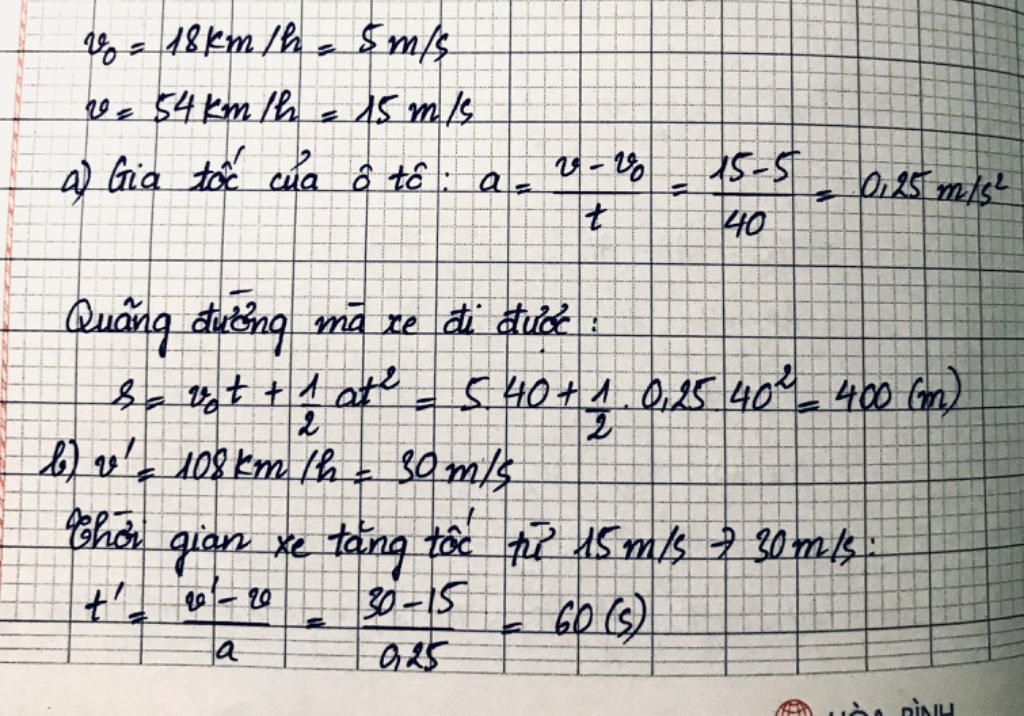 v₀ = 18km/h = 5m/s
v = 54km/h = 15 m/s
a) Gia tốc của ô tô : a = (v - v₀)/t = (15-5)/40 = 0,25 m/s²
Quãng đường mà xe đi được :
s = v₀t + 1/2 at² = 5.40 + 1/2 . 0,25.40² = 400 (m)
b) v' = 108km/h = 30m/s
Thời gian xe tăng tốc từ 15m/s → 30m/s :
t' = (v' - v)/a = (30-15)/0,25 = 60 (s)
HÒA BÌNH